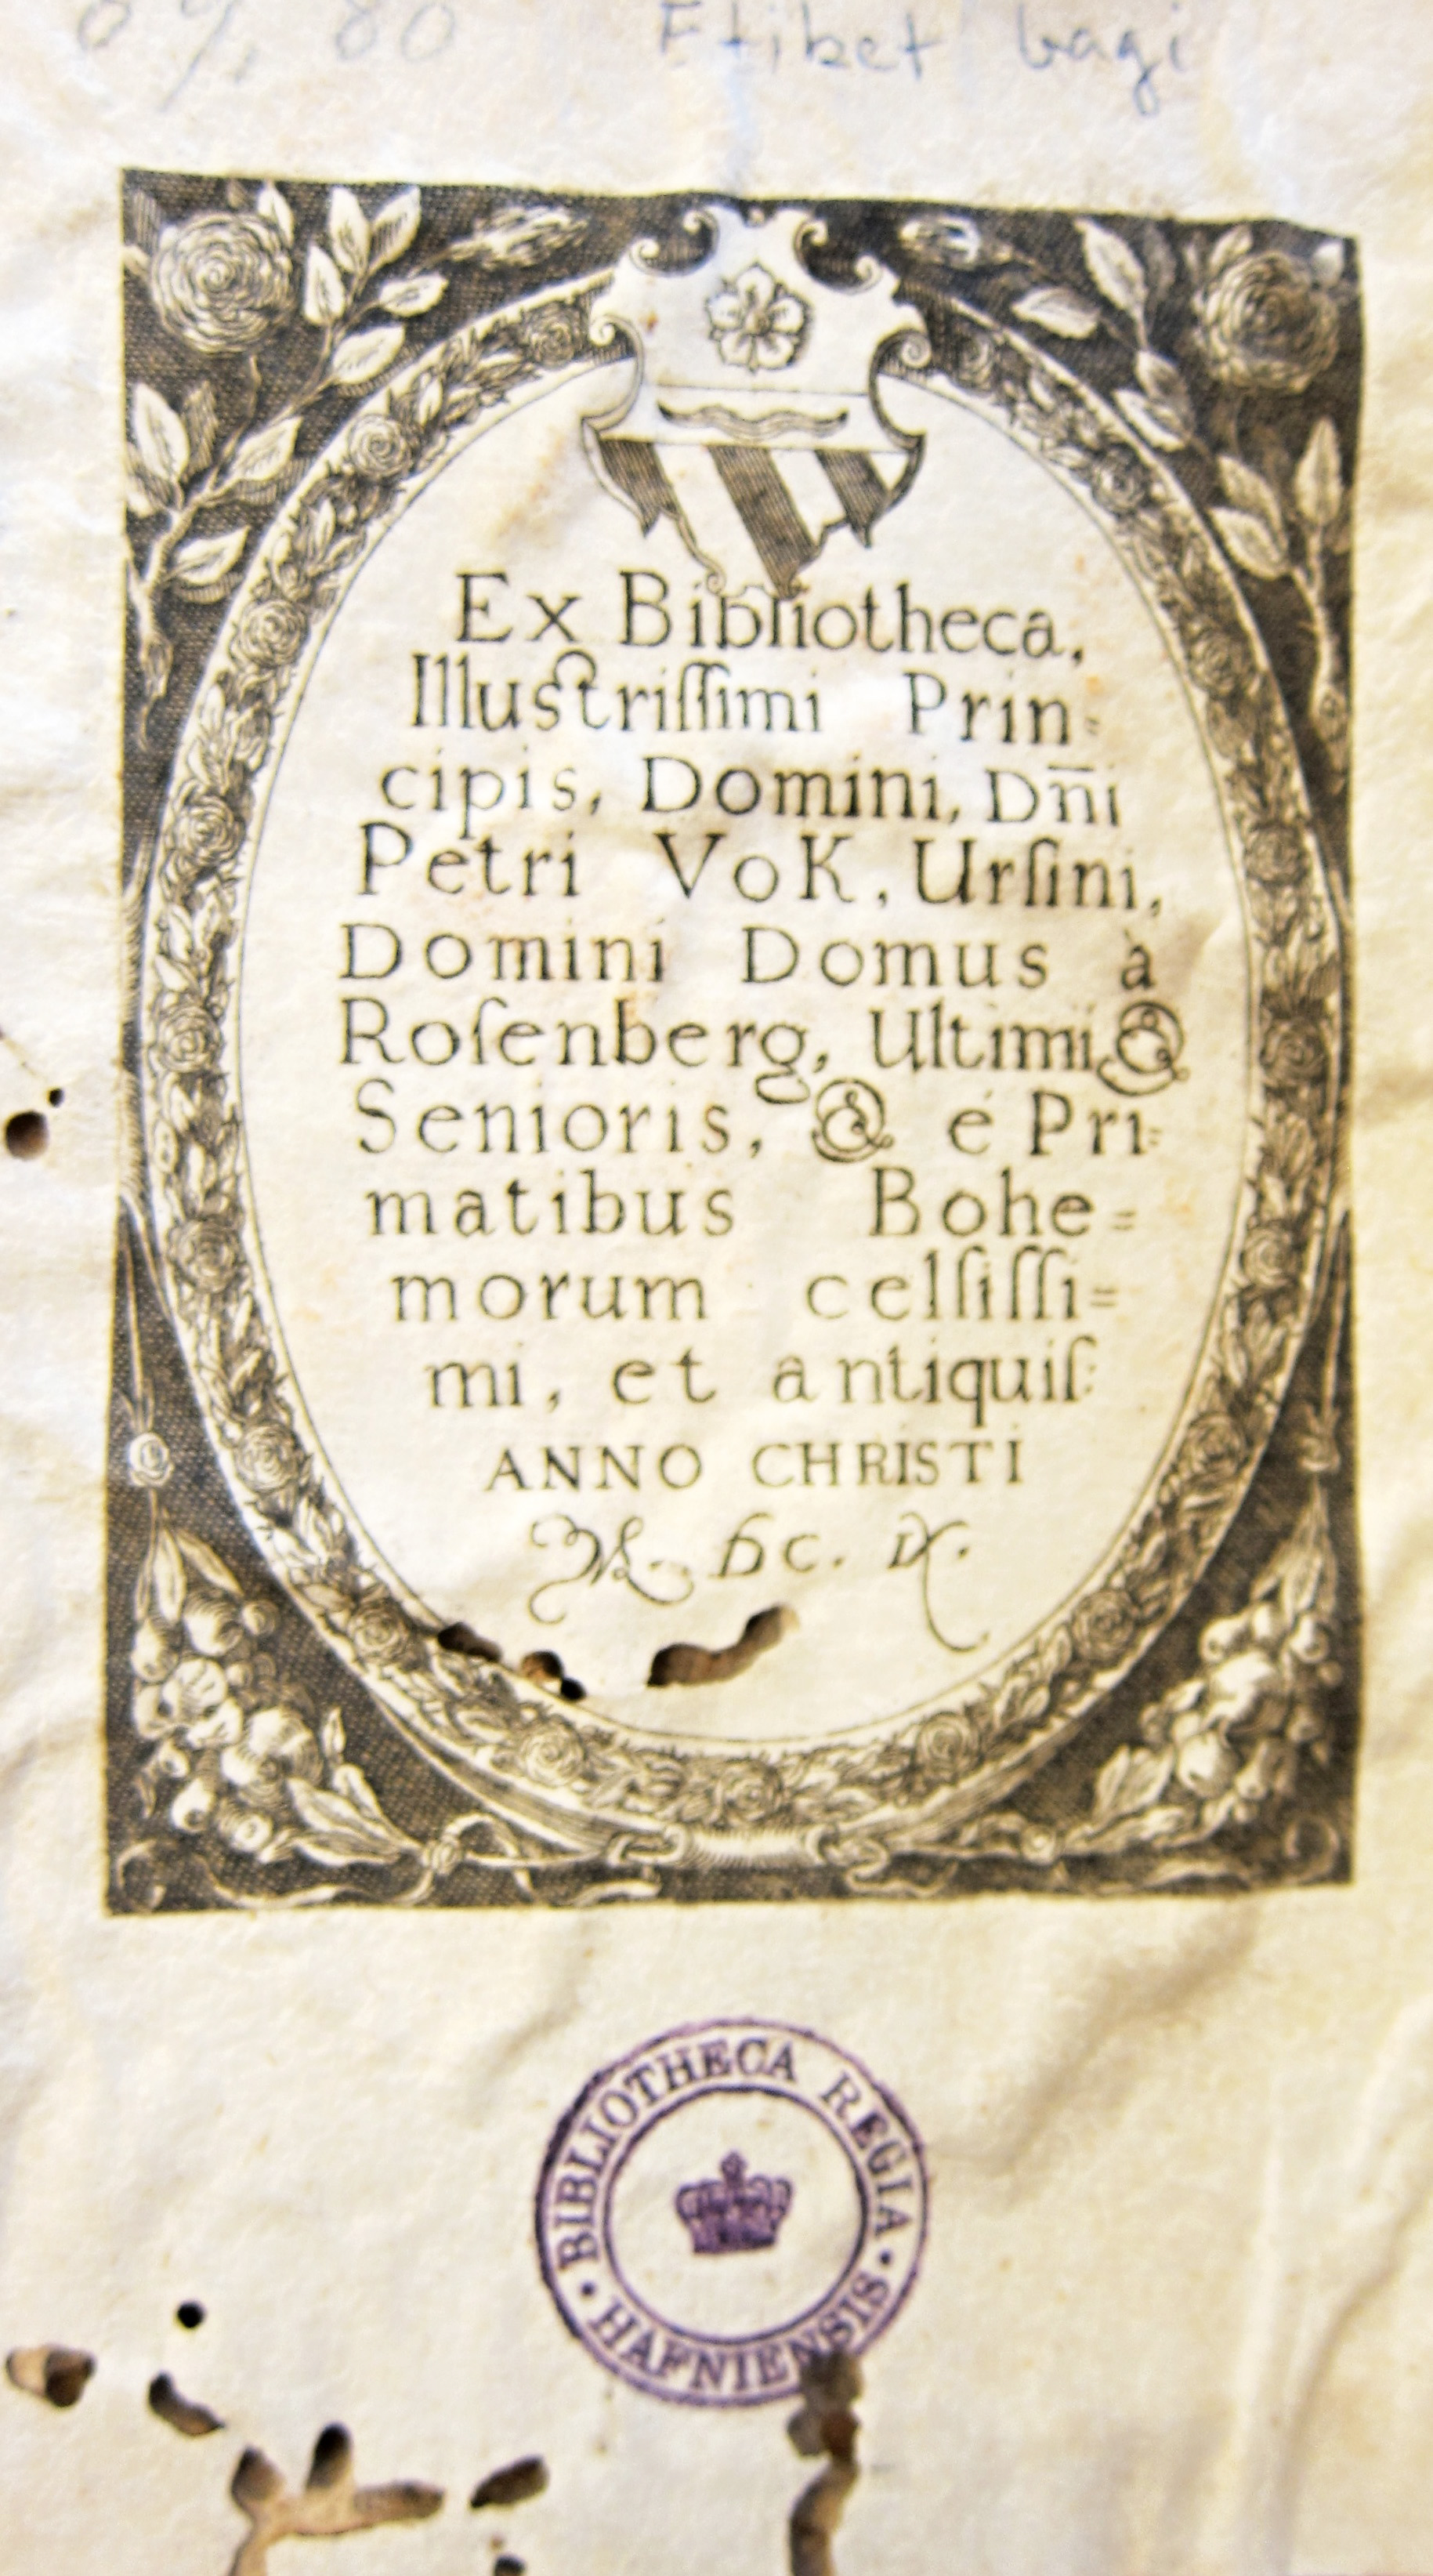 Etiket bagi
Ex Bibliotheca,
Illustriſſimi Prin=
cipis, Domini, Dn̄i
Petri VoK, Urſini,
Domini Domus à
Roſenberg, Ultimi &
Senioris, & é Pri=
matibus Bohe=
morum celſiſſi=
mi, et antiquiſ:
ANNO CHRISTI
M. DC. IX.
BIBLIOTHECA REGIA
HAFNIENSIS